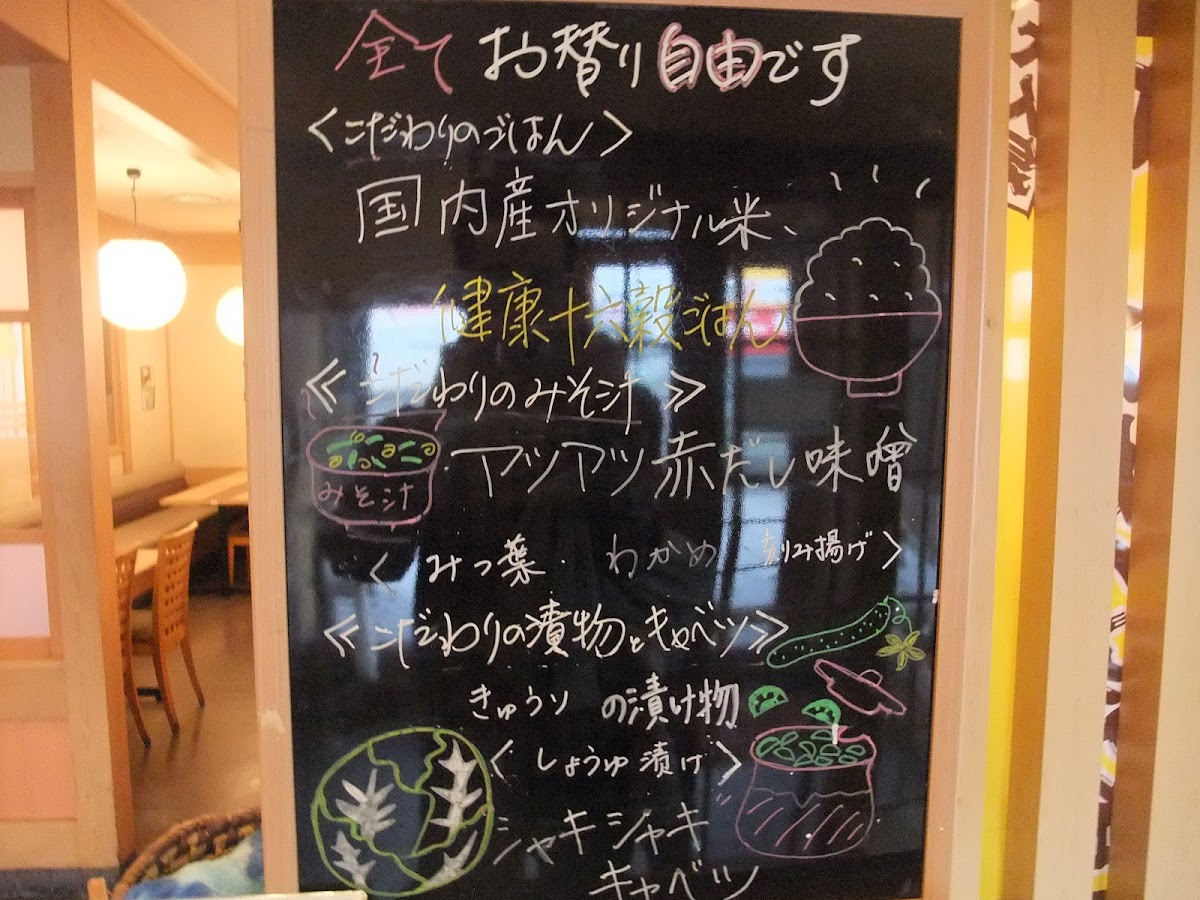 全て お替り 自由です
<こだわりのごはん>
国内産オリジナル米、
健康十六穀ごはん
≪こだわりのみそ汁≫
アツアツ赤だし味噌
みそ汁
<みつ葉・わかめ 刻み揚げ>
≪こだわりの漬物とキャベツ≫
きゅうりの漬け物
<しょうゆ漬け>
シャキシャキ
キャベツ